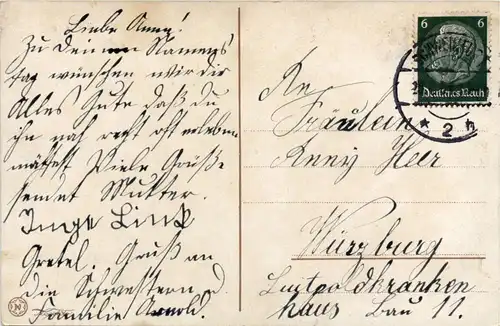 Liebe Anny!
Zu Deinem Namens
tag wünschen wir dir
Alles Gute daß du
ihn noch recht oft erleben
mögest Viele Grüße
sendet Mutter.
Inge Link
Gretel. Gruß an
die Schwestern u.
Familie Arnold.
6 6
Deutsches Reich
* 2 h
An
Fräulein
Anny Heer
Würzburg
Luitpoldkranken
haus Bau 11.
N